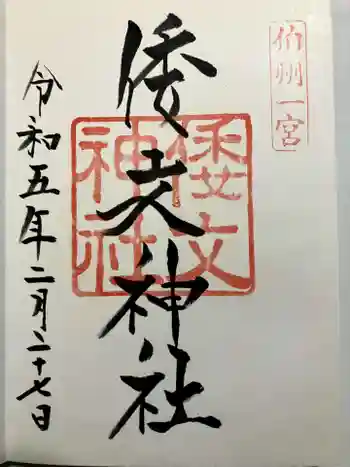 伯州一宮
倭文神社
倭文神社
令和五年二月二十七日